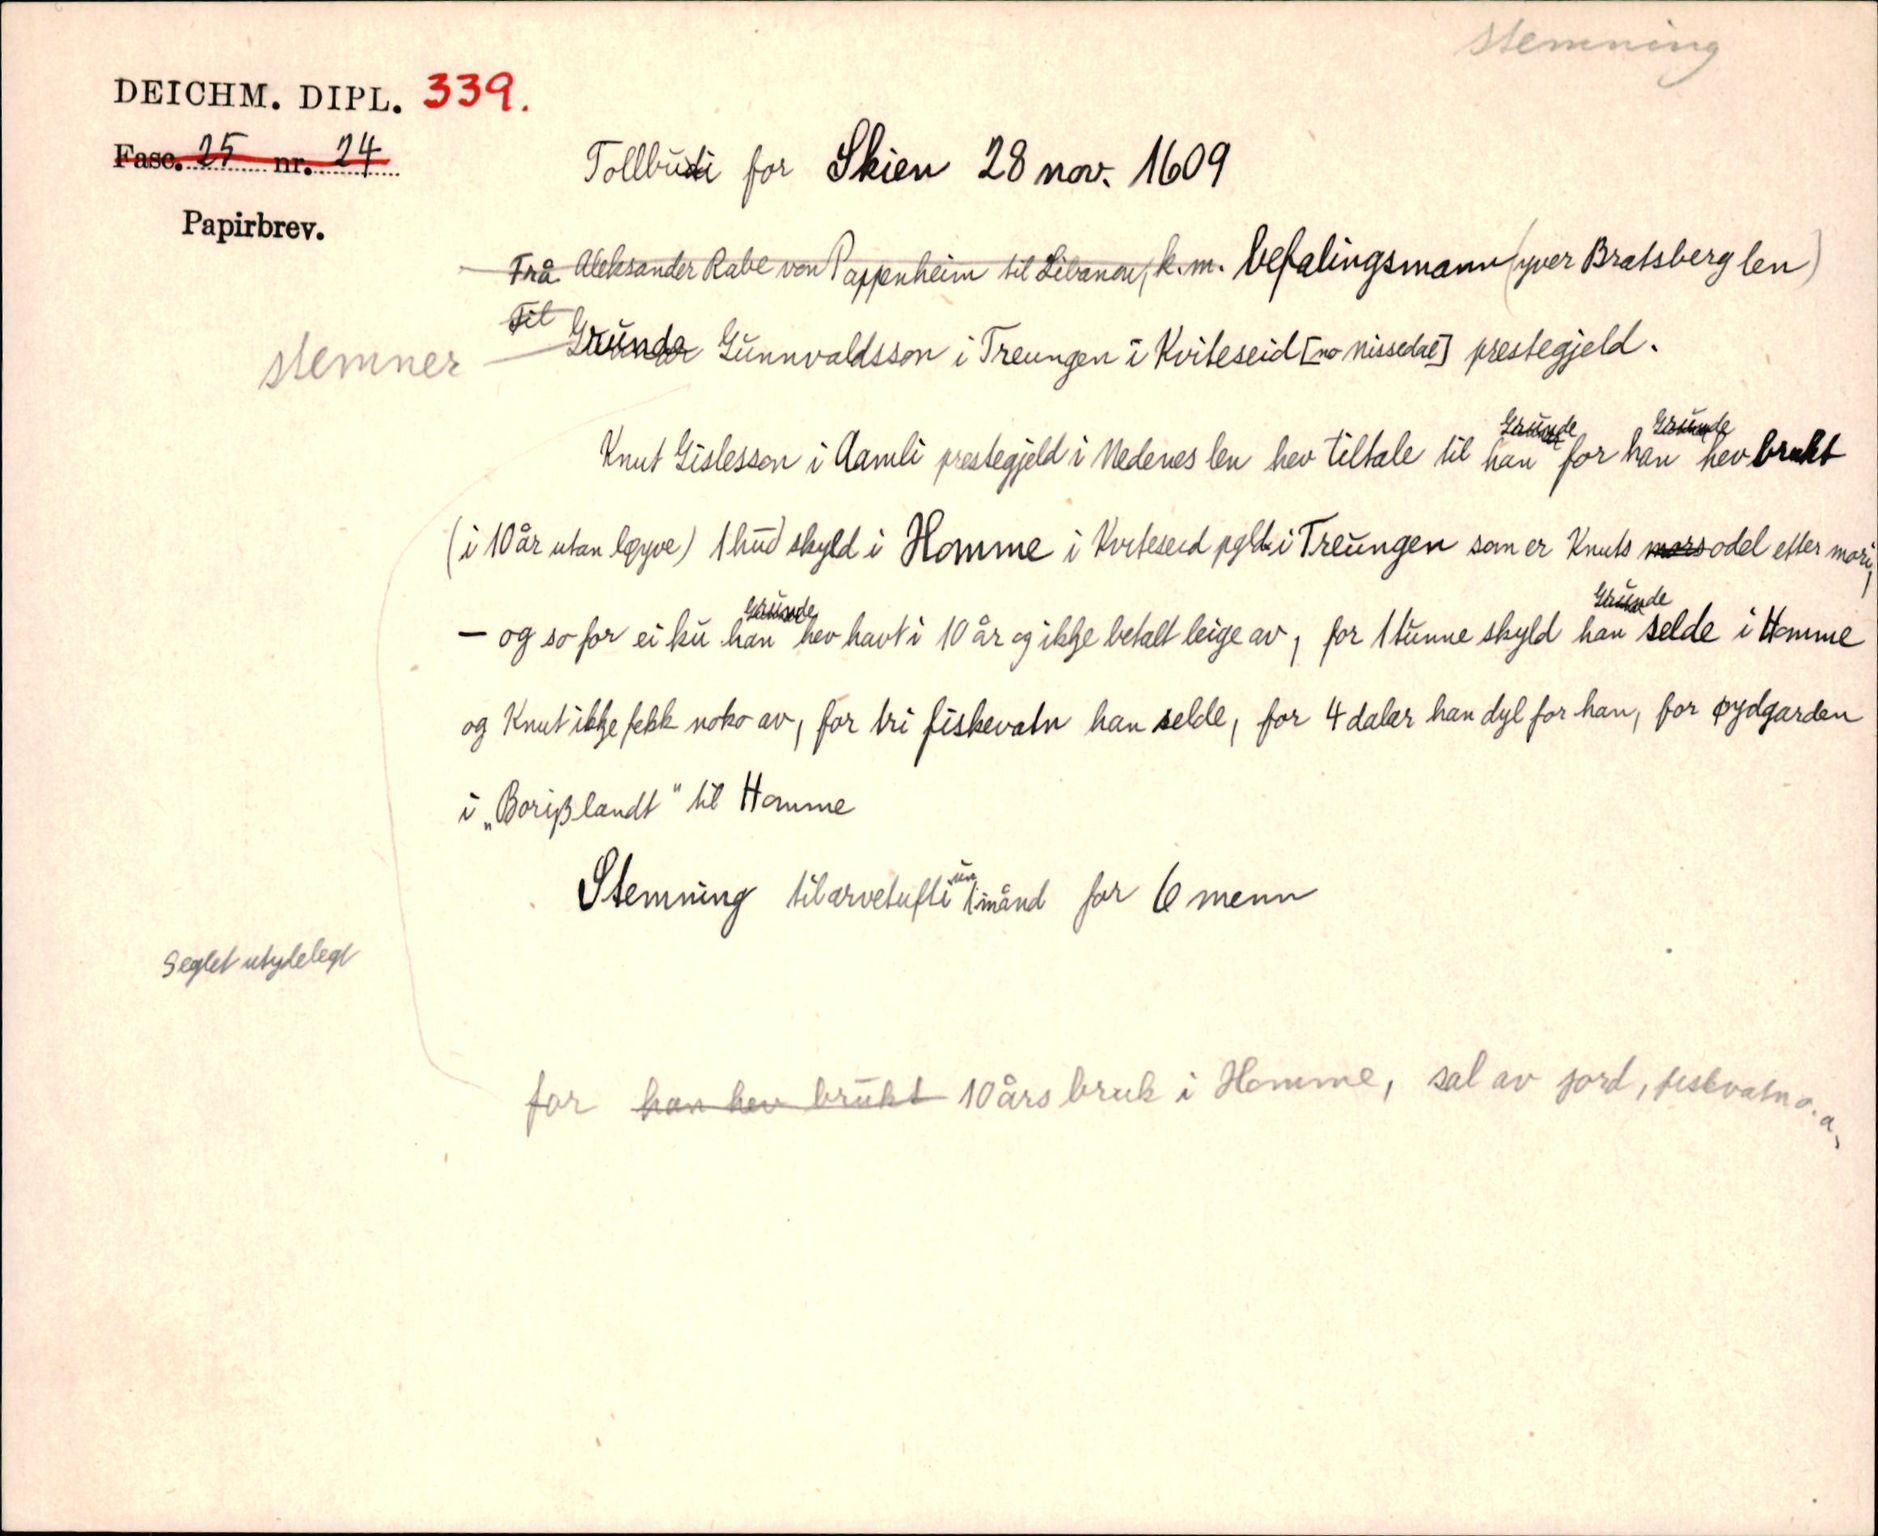 stemning
DEICHM. DIPL. 339.
Fasc. 25 nr. 24
Papirbrev.
Tollbudi for Skien 28 nov. 1609
Frå Aleksander Rabe von Pappenheim til Libanon, k.m. befalingsmann (yver Bratsberg len)
Til
stemner Grunde Gunnvaldsson i Treungen i Kviteseid [no Nissedal] prestegjeld.
Grunde Grunde
Knut Gislesson i Aamli prestegjeld i Nedenes len hev tiltale til han for han hev brukt
(i 10 år utan løyve) 1 hud skyld i Homme i Kviteseid pgld. i Treungen som er Knuts mors odel etter mori,
Grunde Grunde
- og so for ei ku han hev havt i 10 år og ikkje betalt leige av, for 1 tunne skyld han selde i Homme
og Knut ikkje fekk noko av, for tri fiskevatn han selde, for 4 dalar han dyl for han, for øydgarden
i „Borißlandt" til Homme
Stemning til arvetufti um 1 månd for 6 menn
Seglet utydelegt
for han hev brukt 10 års bruk i Homme, sal av jord, fiskvatn o.a,